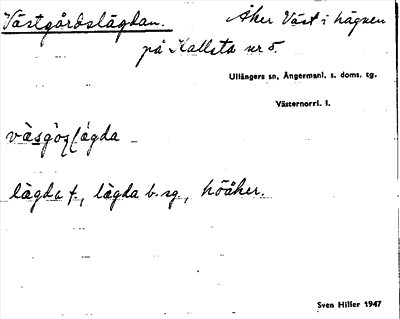 Västgårdslägdan. Åker Väst i hägnen
på Kallsta nr 5.
Ullångers sn, Ångermanl. s. doms. tg.
Västernorrl. l.
lägda f., lägda b. sg., höåker.
Sven Hiller 1947